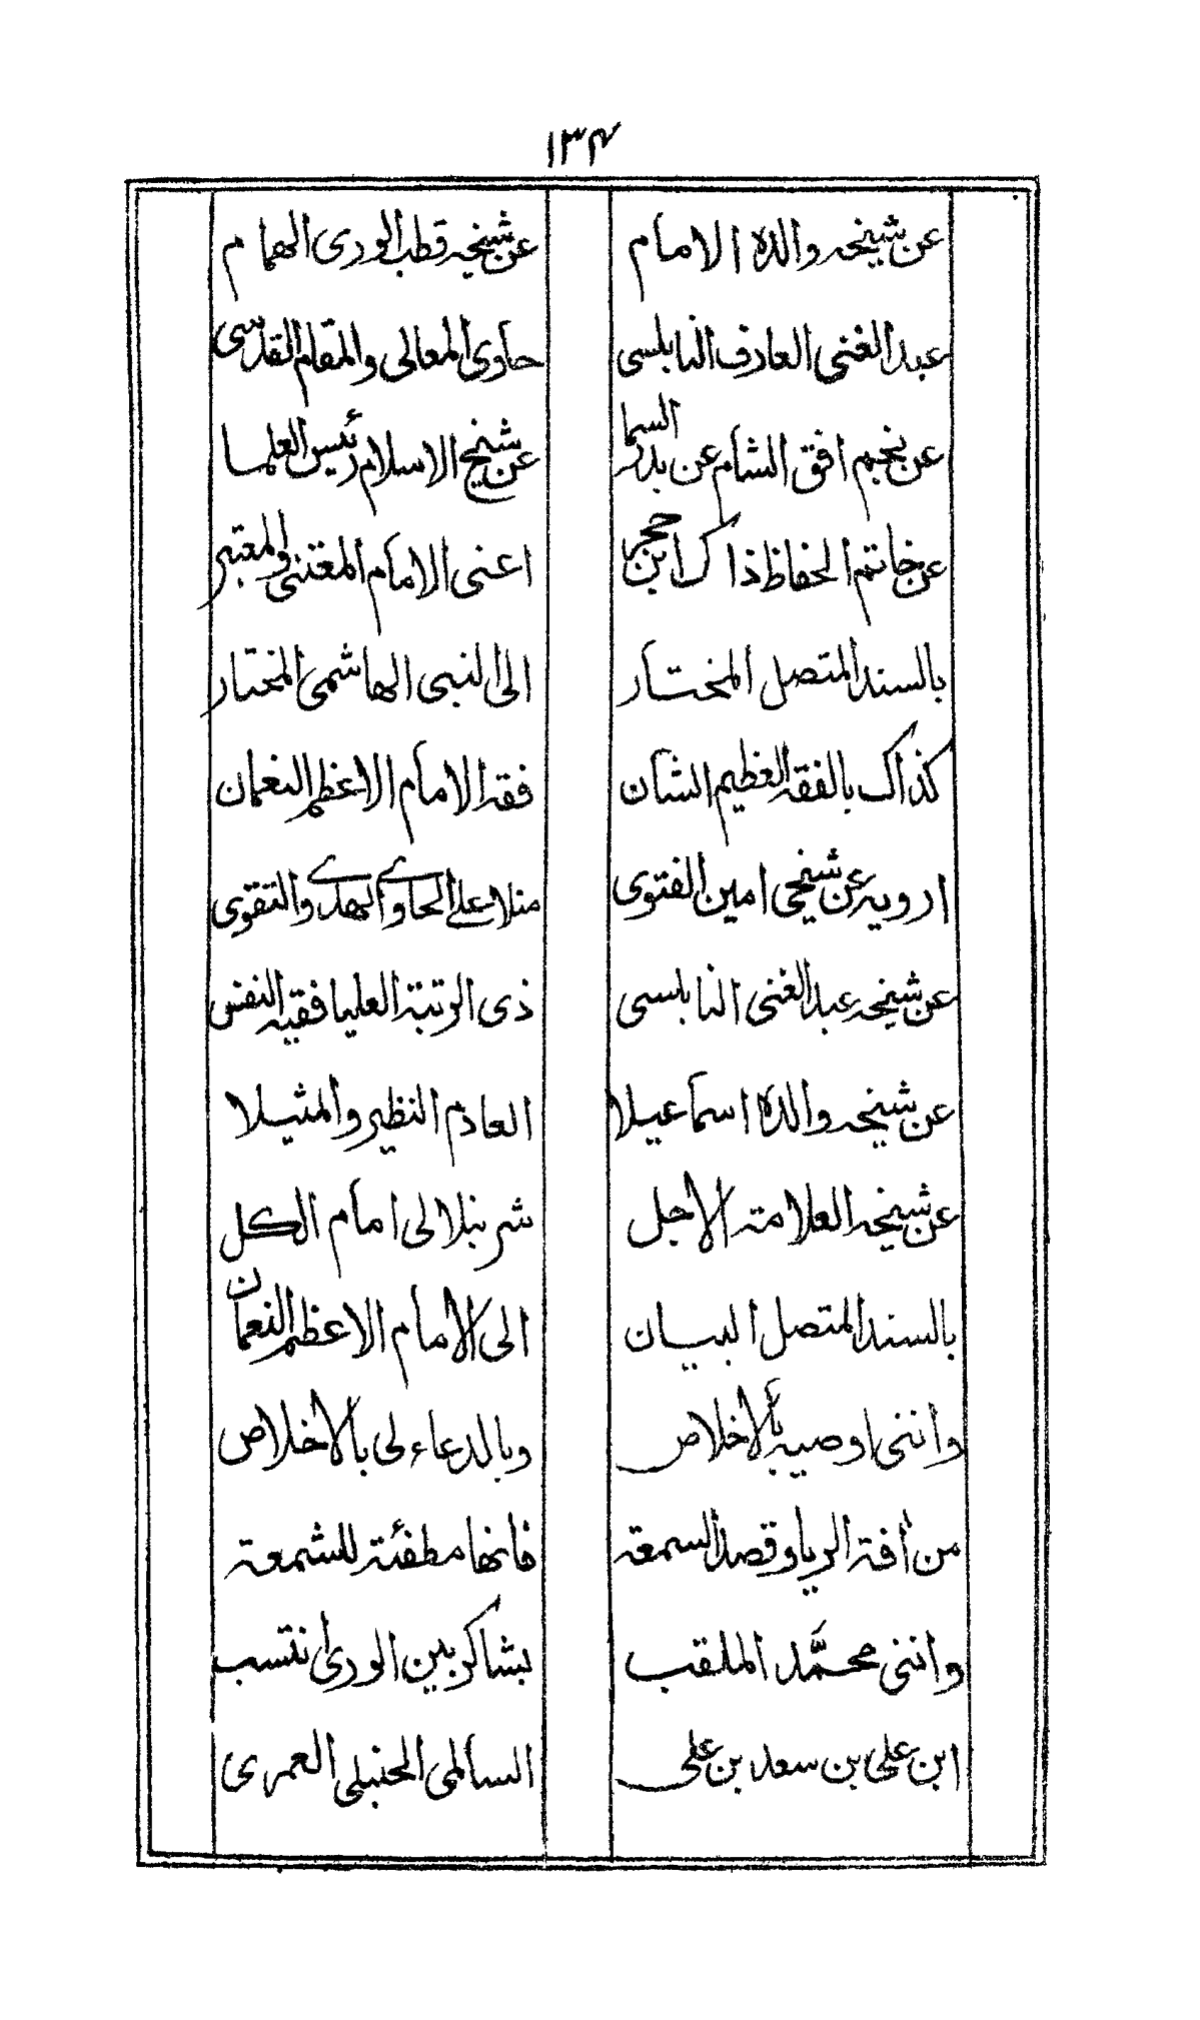 ١٣٤
عن شيخه والده الامام عن شيخه قطب الورى الهمام
عبد الغنى العارف النابلسى حاوى المعالى والمقام القدسى
عن نجم افق الشام عن بدر السما عن شيخ الاسلام رئيس العلما
عن خاتم الحفاظ ذاك ابن حجر اعنى الامام المقتنى والمعتبر
بالسند المتصل المختار الى النبى الهاشمى المختار
كذاك بالفقه العظيم الشان فقه الامام الاعظم النعمان
ارويه عن شيخى امين الفتوى منلا على الحاوى الهدى والتقوى
عن شيخه عبد الغنى النابلسى ذى الرتبة العليا فقيه النفس
عن شيخه والده اسماعيلا العادم النظير والمثيلا
عن شيخه العلامة الاجل شرنبلالى امام الكل
بالسند المتصل البيان الى الامام الاعظم النعمان
واننى اوصيه بالاخلاص وبالدعاء لى بالاخلاص
من أفة الريا وقصد السمعة فانها مطفئة للشمعة
واننى محمَّد الملقب بشاكر بين الورى انتسب
ابن على بن سعد بن على السالمى الحنبلى العمرى